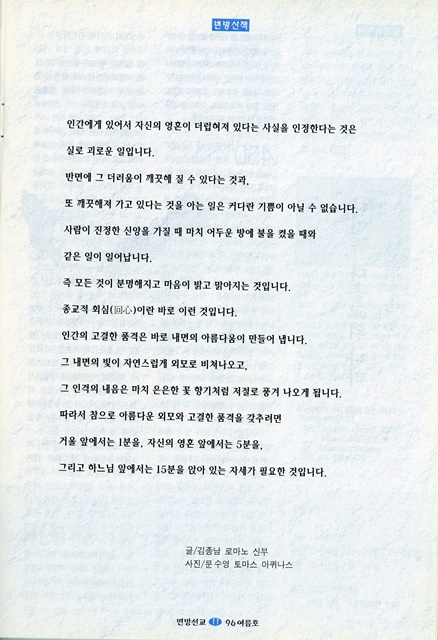 변방산책
인간에게 있어서 자신의 영혼이 더럽혀져 있다는 사실을 인정한다는 것은
실로 괴로운 일입니다.
반면에 그 더러움이 깨끗해 질 수 있다는 것과,
또 깨끗해져 가고 있다는 것을 아는 일은 커다란 기쁨이 아닐 수 없습니다.
사람이 진정한 신앙을 가질 때 마치 어두운 방에 불을 켰을 때와
같은 일이 일어납니다.
즉 모든 것이 분명해지고 마음이 밝고 맑아지는 것입니다.
종교적 회심(回心)이란 바로 이런 것입니다.
인간의 고결한 품격은 바로 내면의 아름다움이 만들어 냅니다.
그 내면의 빛이 자연스럽게 외모로 비쳐나오고,
그 인격의 내음은 마치 은은한 꽃 향기처럼 저절로 풍겨 나오게 됩니다.
따라서 참으로 아름다운 외모와 고결한 품격을 갖추려면
거울 앞에서는 1분을, 자신의 영혼 앞에서는 5분을,
그리고 하느님 앞에서는 15분을 앉아 있는 자세가 필요한 것입니다.
글/김종남 로마노 신부
사진/문수영 토마스 아퀴나스
변방선교 11 96여름호